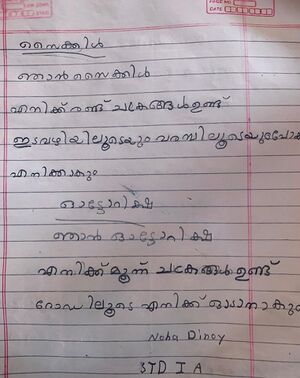 PAGE NO.
DATE
സൈക്കിൾ
ഞാൻ സൈക്കിൾ
എനിക്ക് രണ്ട് ചക്രങ്ങൾ ഉണ്ട്
ഇടവഴിയിലൂടെയും വരമ്പിലൂടെയുംപോക
എനിക്കാകും
ഓട്ടോറിക്ഷ
ഞാൻ ഓട്ടോറിക്ഷ
എനിക്ക് മൂന്ന് ചക്രങ്ങൾ ഉണ്ട്
റോഡിലൂടെ എനിക്ക് ഓടാനാകും
Noha Dinoy
STD I A